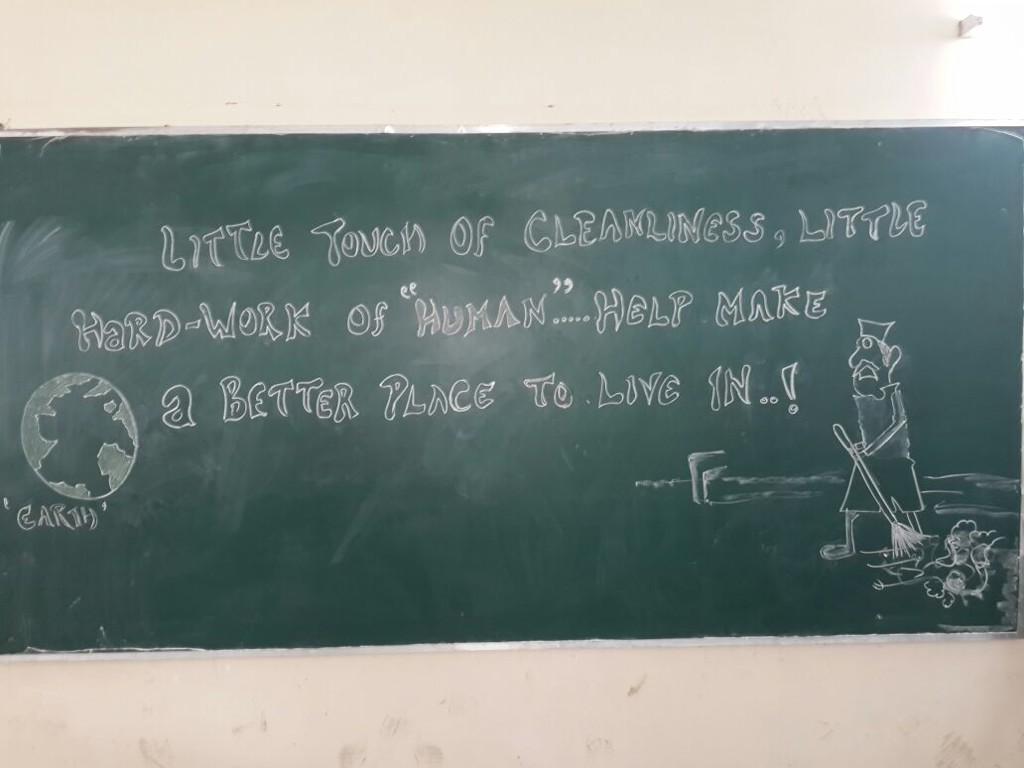 LITTLE TOUCH OF CLEANLINESS, LITTLE
HARD-WORK OF "HUMAN"..... HELP MAKE
a BETTER PLACE TO LIVE IN..!
'EARTH'